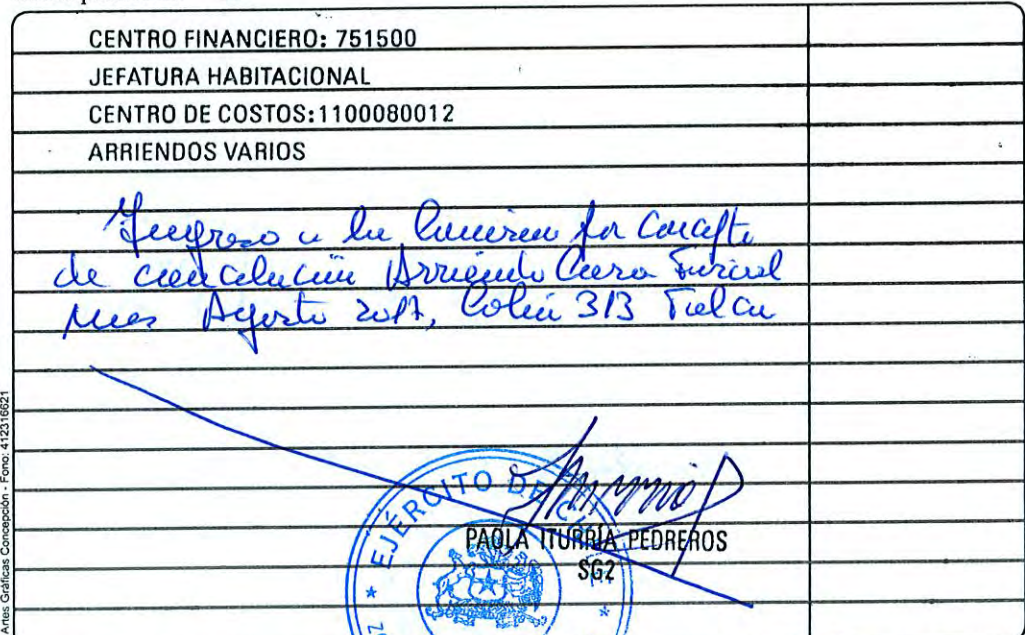 CENTRO FINANCIERO: 751500
JEFATURA HABITACIONAL
CENTRO DE COSTOS:1100080012
ARRIENDOS VARIOS
Ingreso a la por Concepto
de cancelación Arriendo Casa Fiscal
Mes Agosto 2017, Colín 313 Talca
EJÉRCITO DE
PAOLA ITURRIA PEDREROS
SG2
Artes Gráficas Concepción - Fono: 412316621